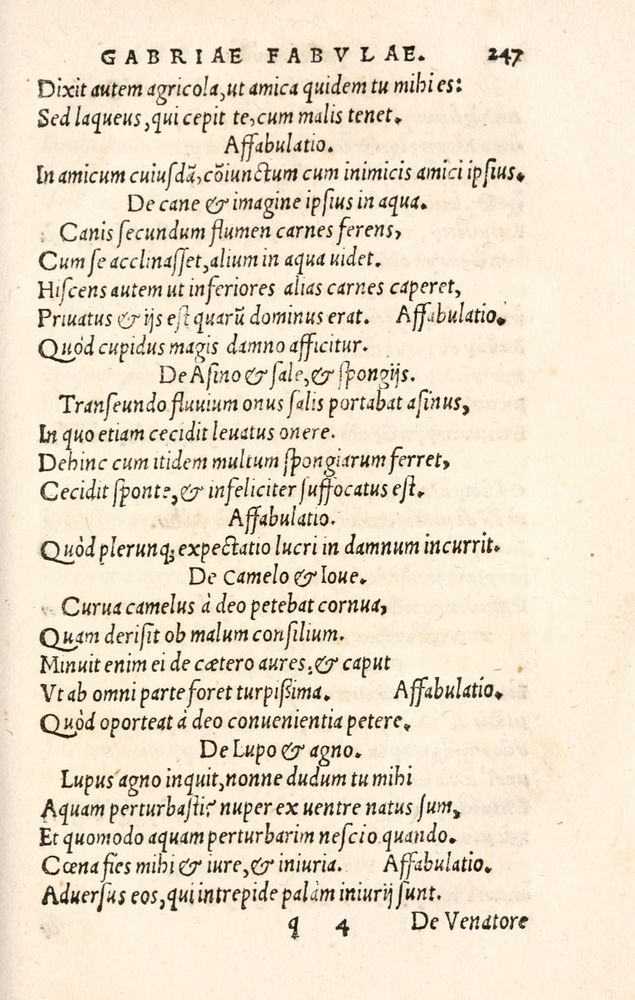 GABRIAE FABVLAE. 247
Dixit autem agricola, ut amica quidem tu mihi es:
Sed laqueus, qui cepit te, cum malis tenet.
Affabulatio.
In amicum cuiusdã, cõiunctum cum inimicis amici ipsius.
De cane & imagine ipsius in aqua.
Canis secundum flumen carnes ferens,
Cum se acclinasset, alium in aqua uidet.
Hiscens autem ut inferiores alias carnes caperet,
Priuatus & ijs est quarũ dominus erat. Affabulatio.
Quòd cupidus magis damno afficitur.
De Asino & sale, & spongijs.
Transeundo fluuium onus salis portabat asinus,
In quo etiam cecidit leuatus onere.
Dehinc cum itidem multum spongiarum ferret,
Cecidit sponte, & infeliciter suffocatus est.
Affabulatio.
Quòd plerunq; expectatio lucri in damnum incurrit.
De Camelo & Ioue.
Curua camelus à deo petebat cornua,
Quam derisit ob malum consilium.
Minuit enim ei de cætero aures, & caput
Vt ab omni parte foret turpissima. Affabulatio.
Quòd oporteat à deo conuenientia petere.
De Lupo & agno.
Lupus agno inquit, nonne dudum tu mihi
Aquam perturbasti? nuper ex uentre natus sum,
Et quomodo aquam perturbarim nescio quando.
Cœna fies mihi & iure, & iniuria. Affabulatio.
Aduersus eos, qui intrepide palàm iniurij sunt.
q 4 De Venatore